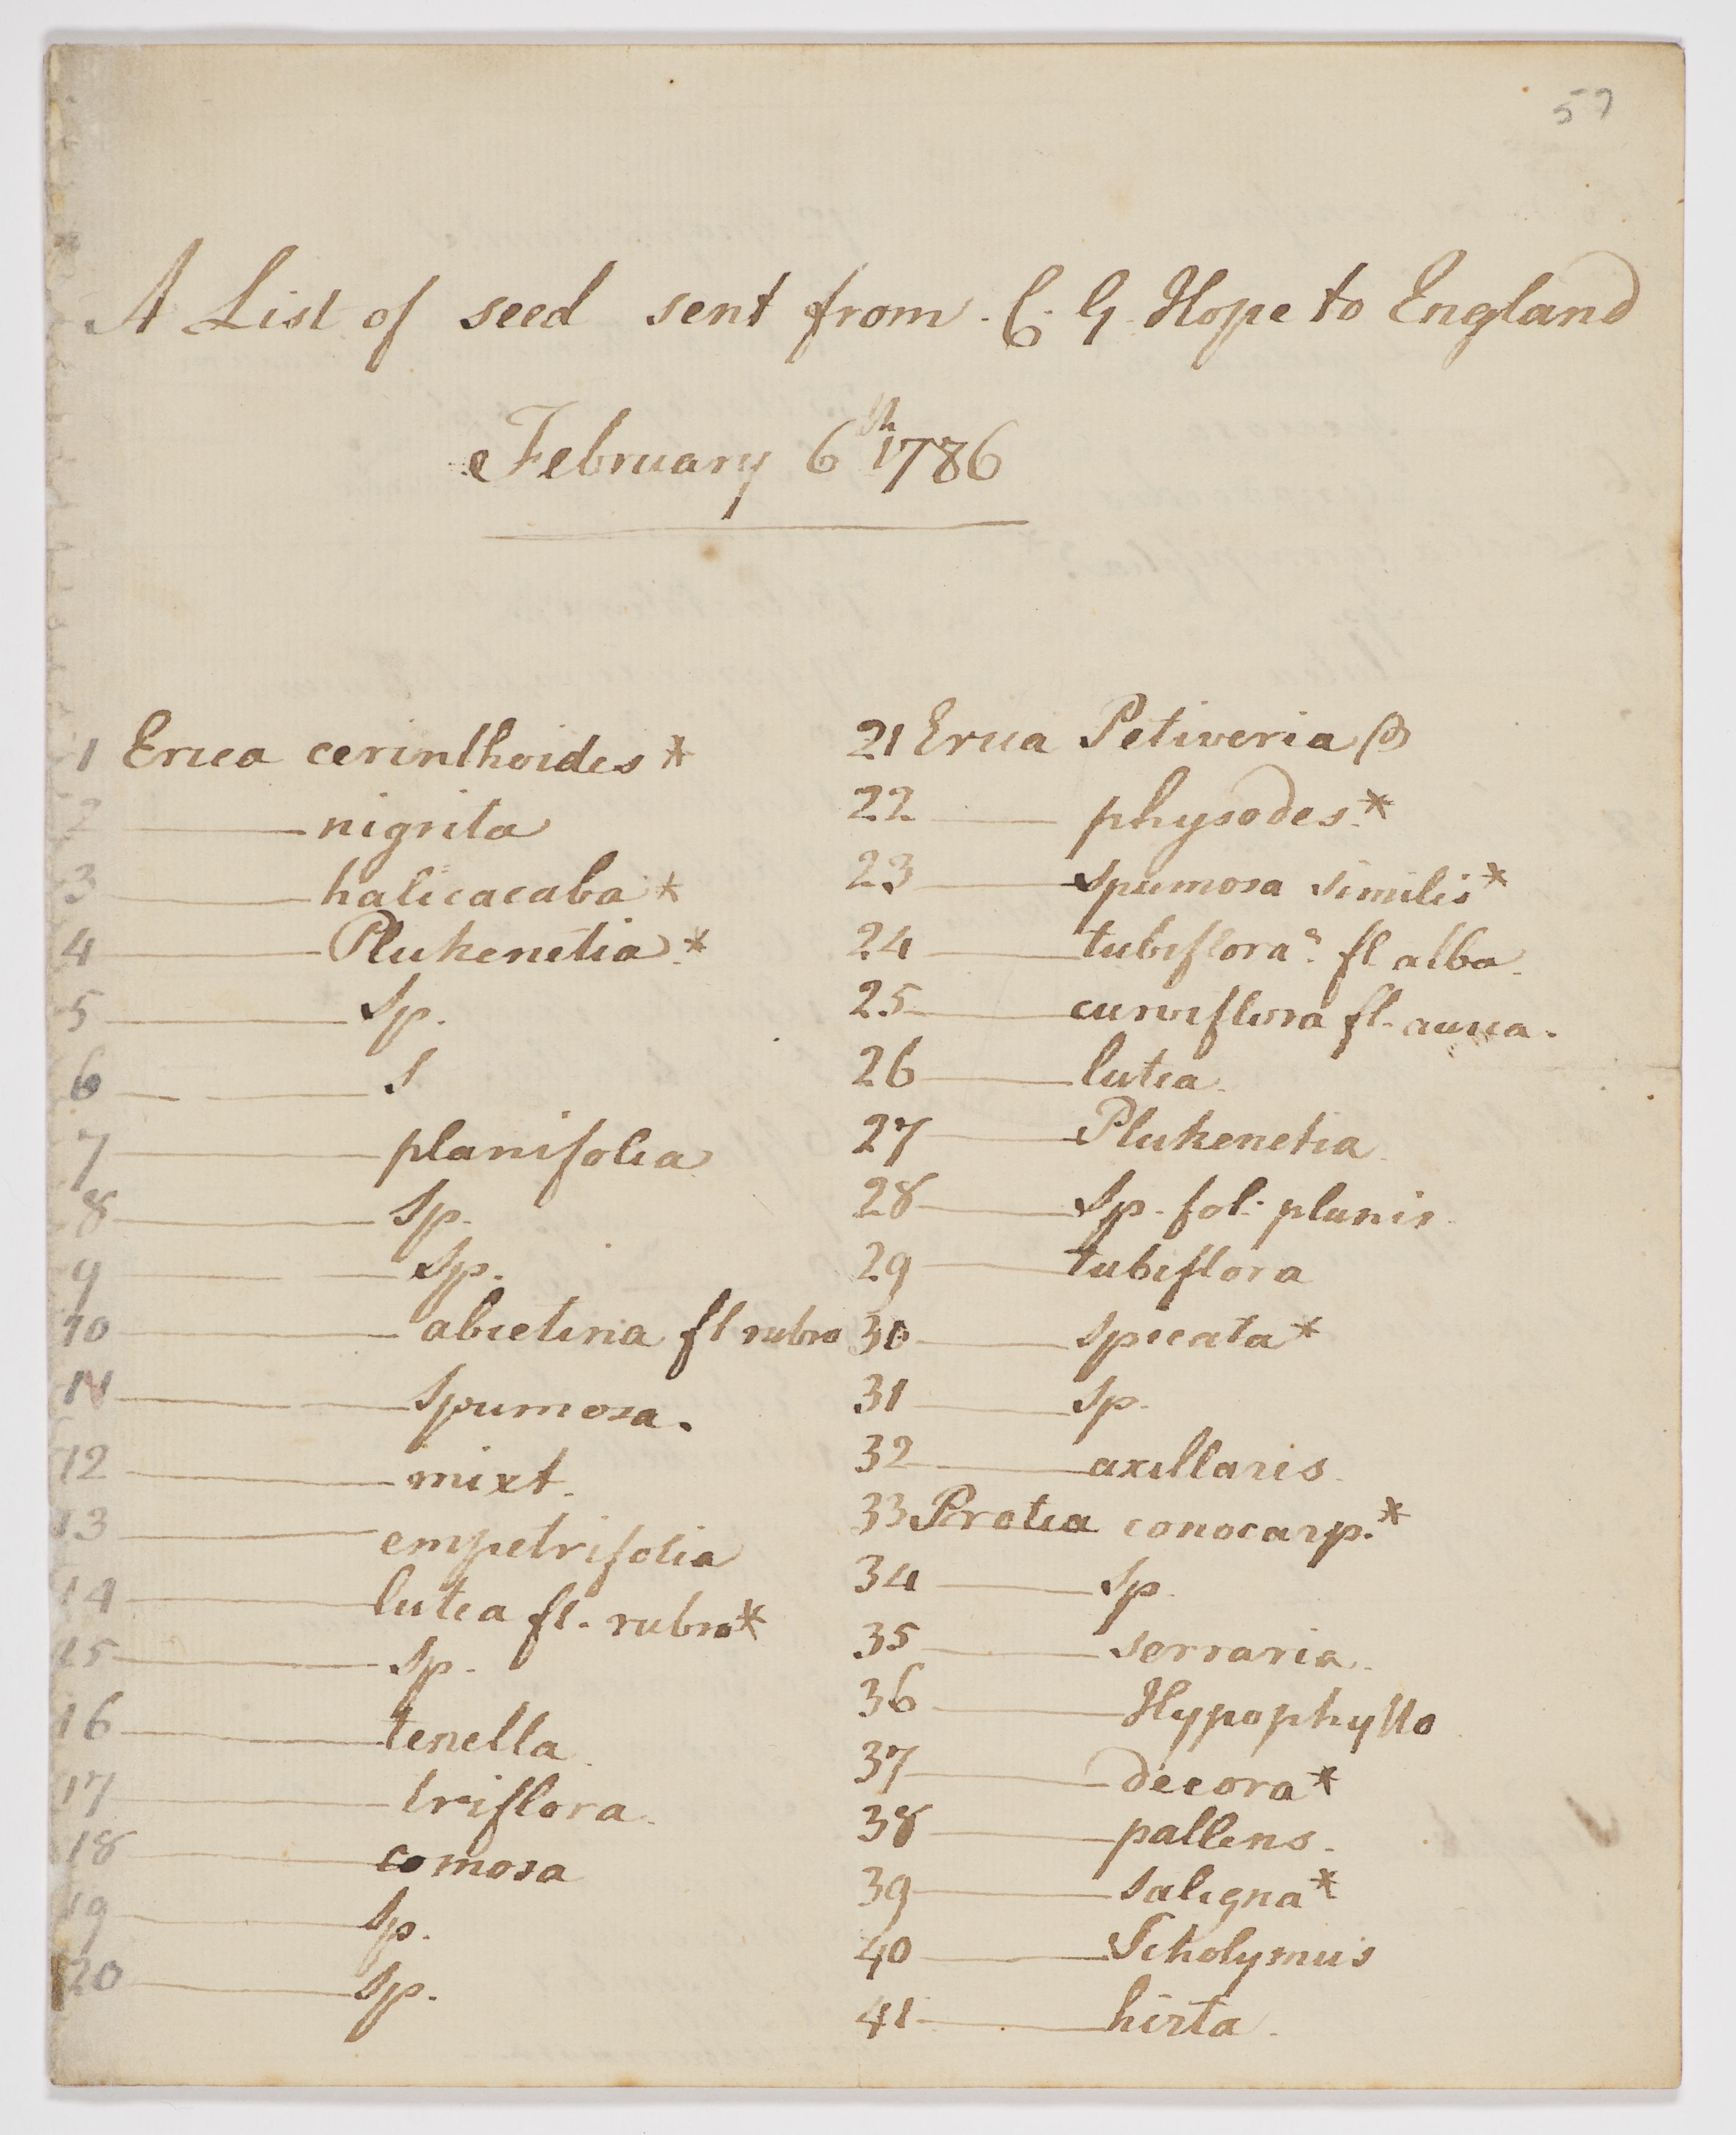 57
A List of seed sent from C. G. Hope to England
February 6th 1786
1 Erica cerinthoides *
2 —— nigrita
3 —— halicacaba *
4 —— Plukenetia *
5 —— Sp.
6 —— S
7 —— planifolia
8 —— Sp.
9 —— Sp.
10 —— abietina fl rubro
11 —— Spumosa.
12 —— mixt.
13 —— empetrifolia
14 —— lutea fl. rubro *
15 —— Sp.
16 —— tenella
17 —— triflora.
18 —— comosa
19 —— Sp.
20 —— Sp.
21 Erica Petiveria β
22 —— physodes *
23 —— Spumosa similis *
24 —— tubiflora? fl alba.
25 —— curviflora fl. aurea.
26 —— lutea.
27 —— Plukenetia.
28 —— Sp. fol: planis.
29 —— tubiflora
30 —— spicata *
31 —— Sp.
32 —— axillaris.
33 Protea conocarp. *
34 —— Sp.
35 —— serraria.
36 —— Hypophyllo
37 —— decora *
38 —— pallens.
39 —— saligna *
40 —— Scholymus
41 —— hirta.